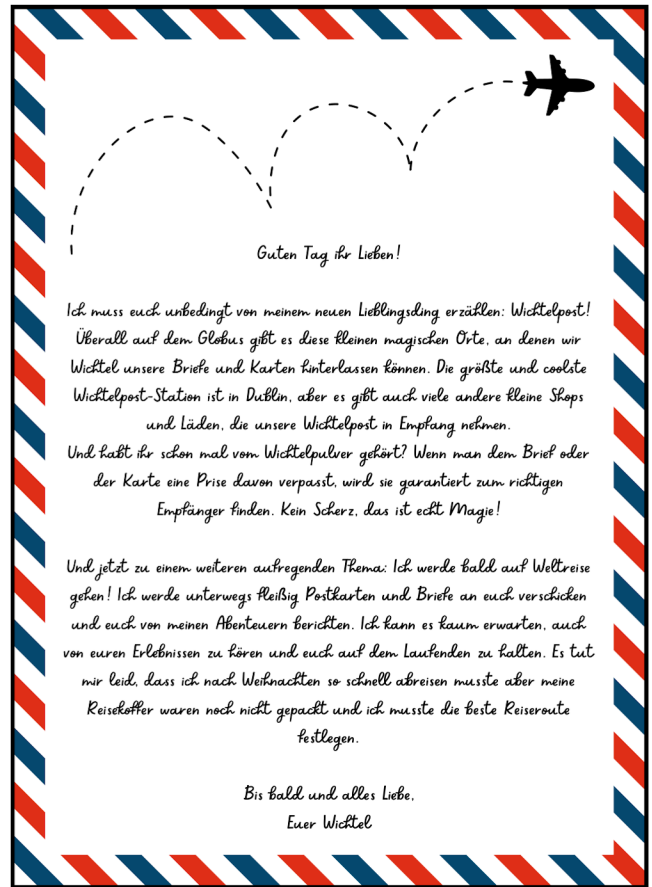 Guten Tag ihr Lieben!
Ich muss euch unbedingt von meinem neuen Lieblingsding erzählen: Wichtelpost!
Überall auf dem Globus gibt es diese kleinen magischen Orte, an denen wir
Wichtel unsere Briefe und Karten hinterlassen können. Die größte und coolste
Wichtelpost-Station ist in Dublin, aber es gibt auch viele andere kleine Shops
und Läden, die unsere Wichtelpost in Empfang nehmen.
Und habt ihr schon mal vom Wichtelpulver gehört? Wenn man dem Brief oder
der Karte eine Prise davon verpasst, wird sie garantiert zum richtigen
Empfänger finden. Kein Scherz, das ist echt Magie!
Und jetzt zu einem weiteren aufregenden Thema: Ich werde bald auf Weltreise
gehen! Ich werde unterwegs fleißig Postkarten und Briefe an euch verschicken
und euch von meinen Abenteuern berichten. Ich kann es kaum erwarten, auch
von euren Erlebnissen zu hören und euch auf dem Laufenden zu halten. Es tut
mir leid, dass ich nach Weihnachten so schnell abreisen musste aber meine
Reisekoffer waren noch nicht gepackt und ich musste die beste Reiseroute
festlegen.
Bis bald und alles Liebe,
Euer Wichtel